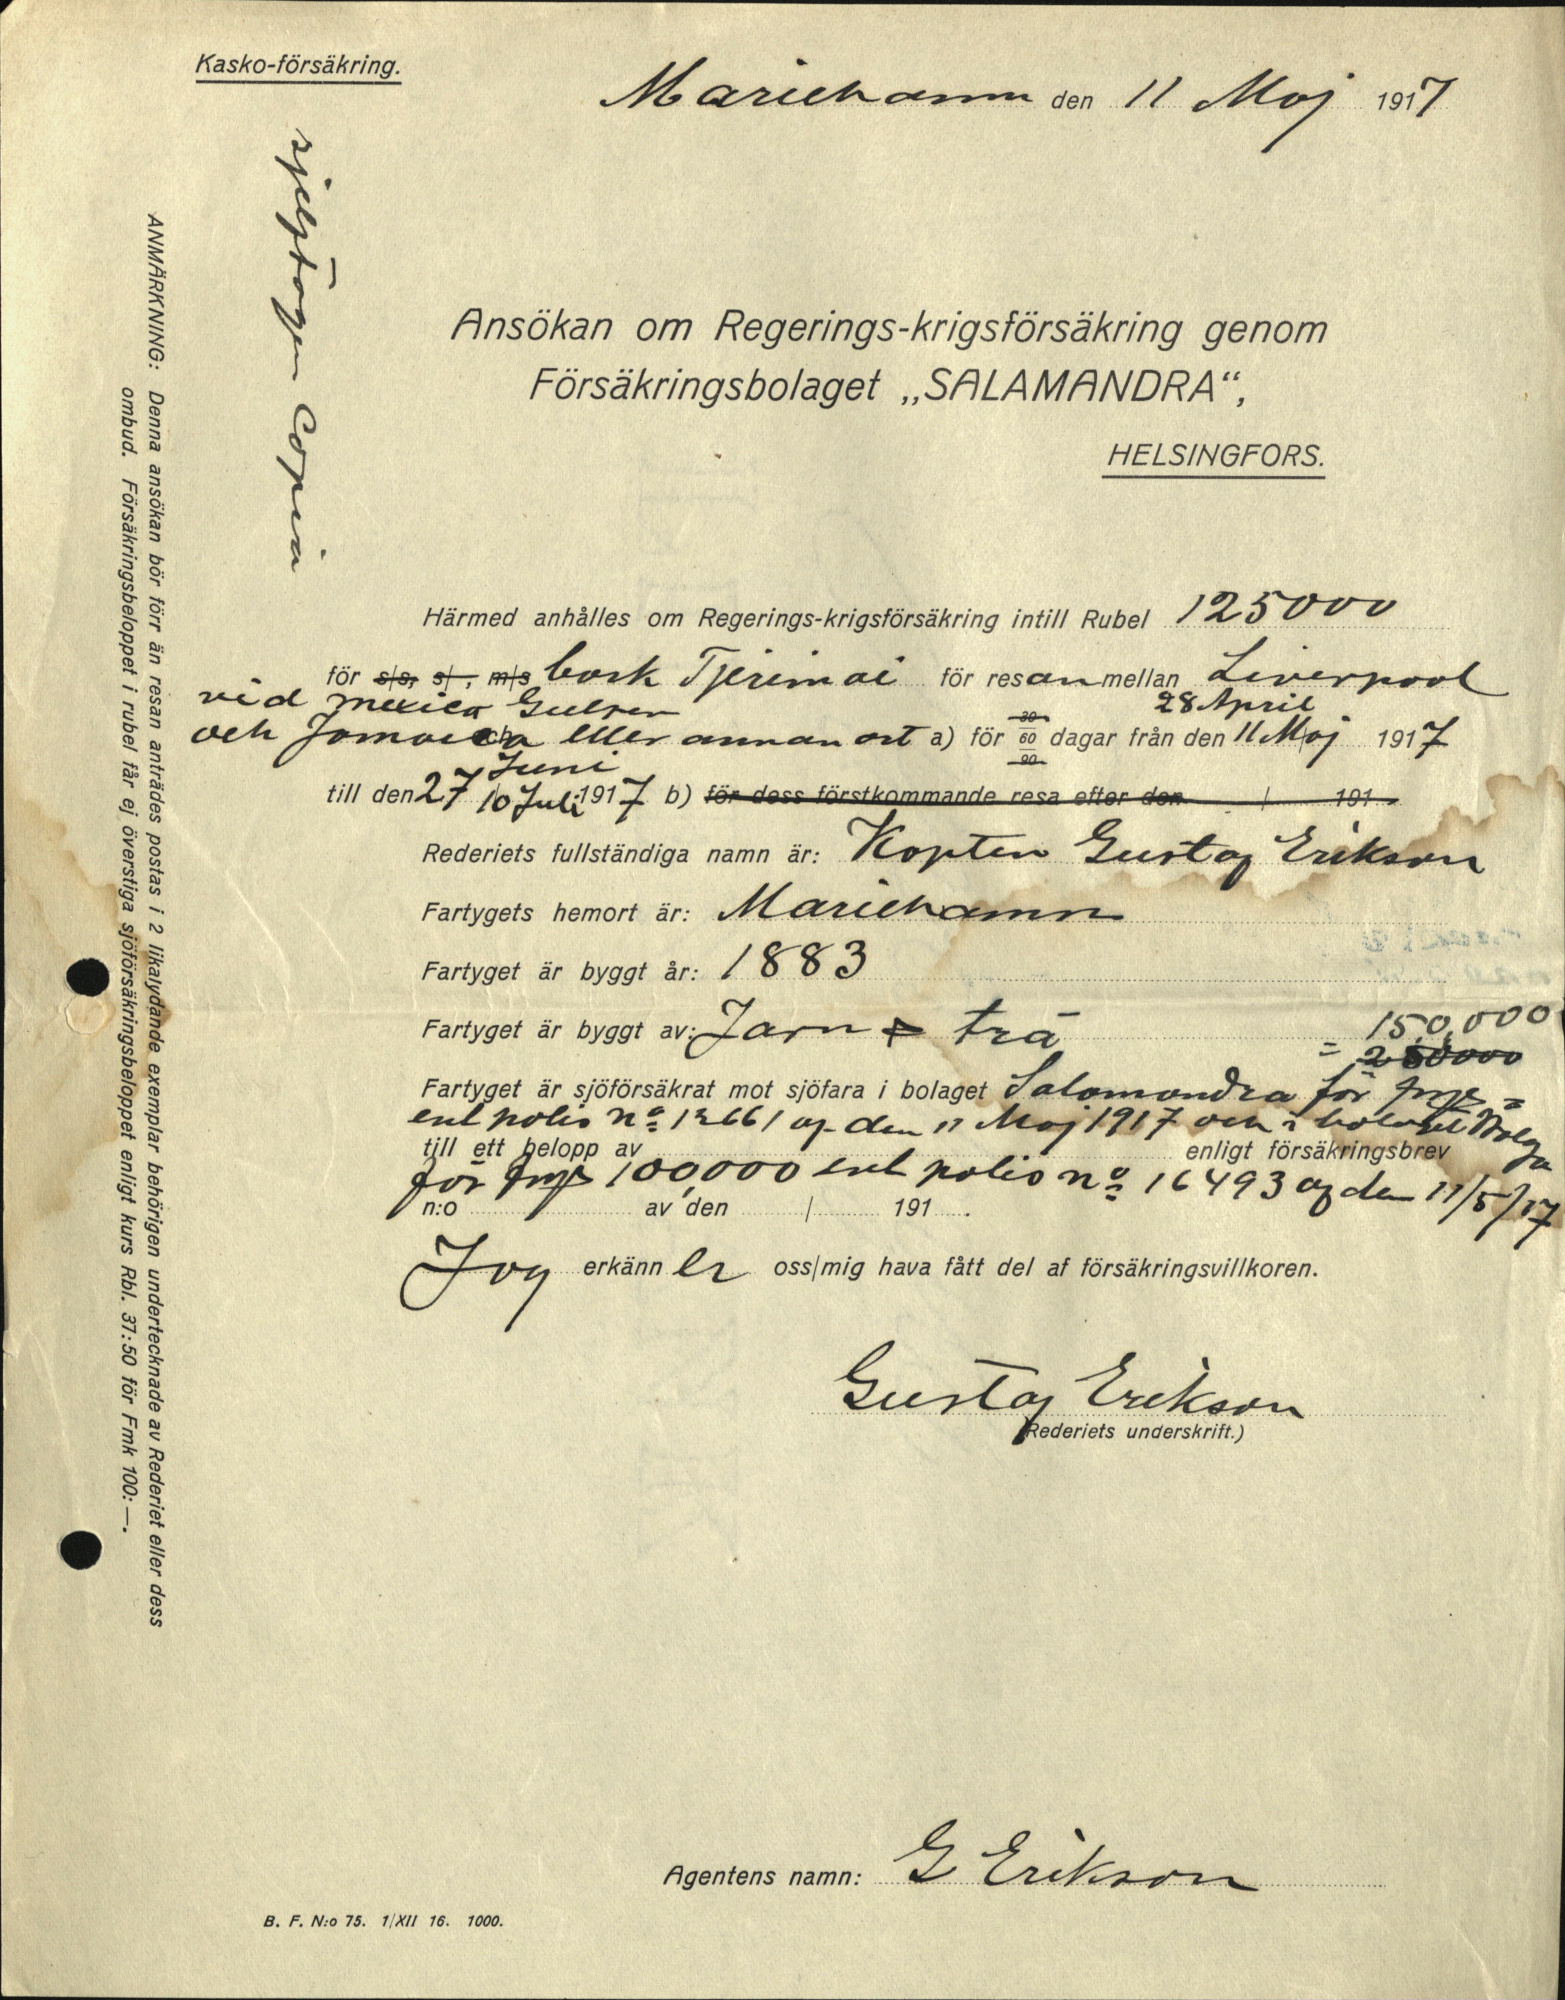 Kasko-försäkring.
Mariehamn den 11 Maj 1917
sjelftagen Copia
ANMÄRKNING: Denna ansökan bör förr än resan anträdes postas i 2 likalydande exemplar behörigen undertecknade av Rederiet eller dess
ombud. Försäkringsbeloppet i rubel får ej överstiga sjöförsäkringsbeloppet enligt kurs Rbl. 37:50 för Fmk 100:—.
Ansökan om Regerings-krigsförsäkring genom
Försäkringsbolaget „SALAMANDRA“,
HELSINGFORS.
Härmed anhålles om Regerings-krigsförsäkring intill Rubel 125000
för s/s, s/, m/s bark Tjerimai för resan mellan Liverpool
vid mexico Gulfen 28 April
och Jamaica eller annan ort a) för 30 60 90 dagar från den 11 Maj 1917
Juni
till den 27 10 Juli 1917 b) för dess förstkommande resa efter den / 191
Rederiets fullständiga namn är: Kapten Gustaf Erikson
Fartygets hemort är: Mariehamn
Fartyget är byggt år: 1883
Fartyget är byggt av: Jarn & trä 150,000
= 250000
Fartyget är sjöförsäkrat mot sjöfara i bolaget Salamandra för fmk =
enl polis No 12661 af den 11 Maj 1917 och i bolaget Wolga
till ett belopp av enligt försäkringsbrev
för fmk 100,000 enl polis no 16493 af den 11/5/17
n:o av den / 191 .
Jag erkänner oss/mig hava fått del af försäkringsvillkoren.
Gustaf Erikson
(Rederiets underskrift.)
Agentens namn: G Erikson
B. F. N:o 75. 1/XII 16. 1000.